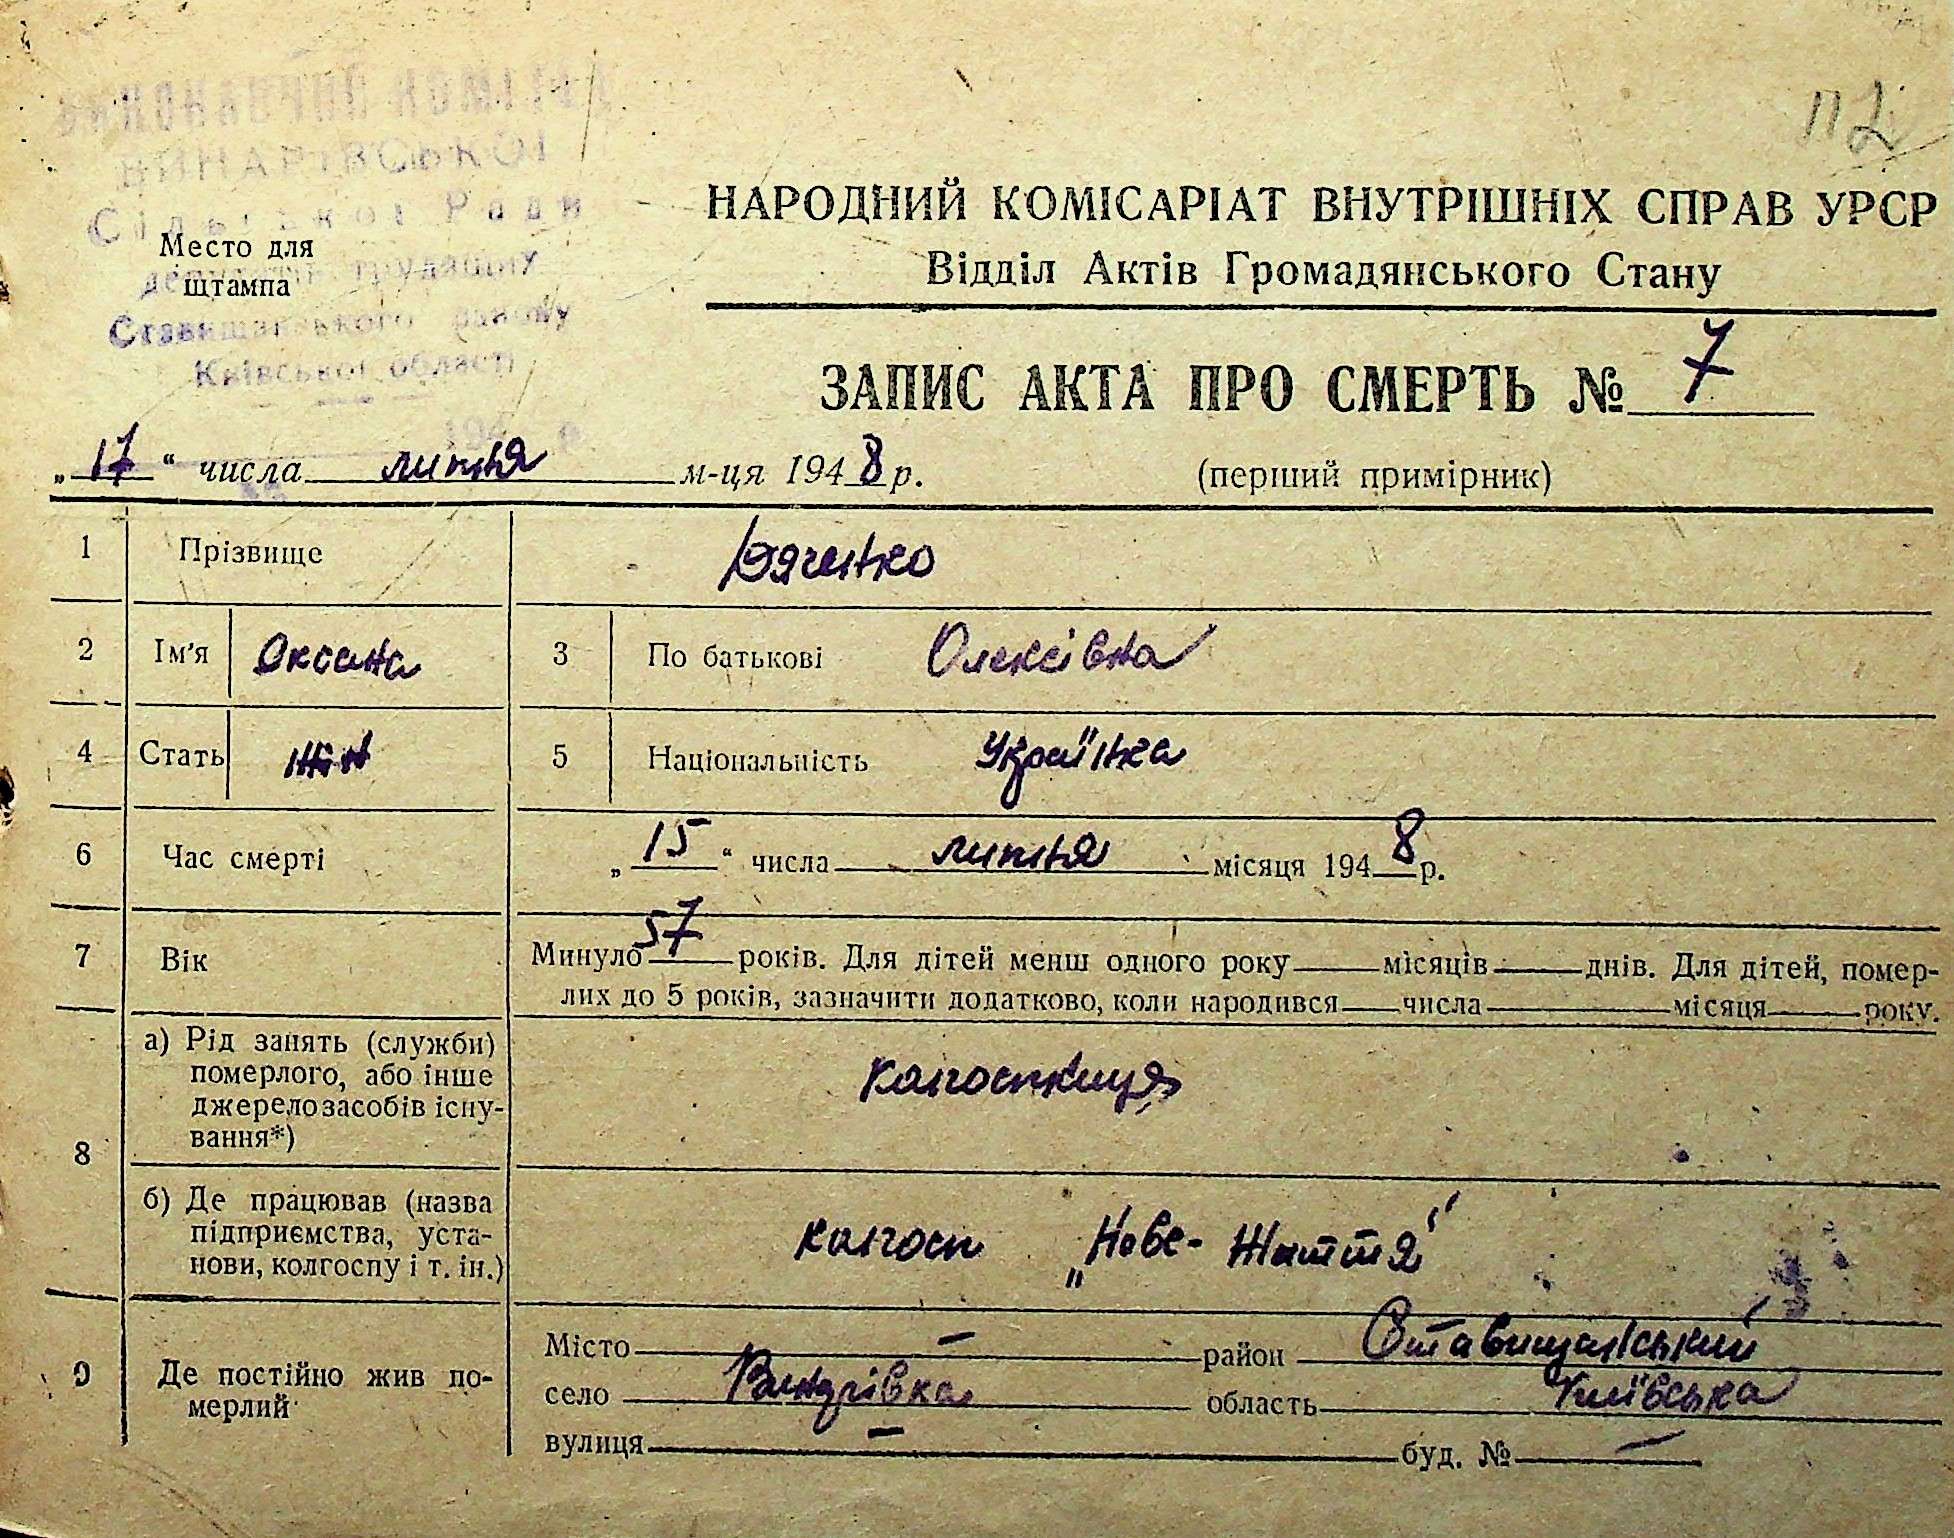 ВИКОНАВЧИЙ КОМІТЕТ
ВИНАРІВСЬКОЇ
Сільської Ради
депутатів трудящих
Ставищанського району
Київської області
Место для
штампа
112
НАРОДНИЙ КОМІСАРІАТ ВНУТРІШНІХ СПРАВ УРСР
Відділ Актів Громадянського Стану
ЗАПИС АКТА ПРО СМЕРТЬ № 7
„17“ числа липня м-ця 1948 р.
(перший примірник)
1 Прізвище Дяченко
2 Ім'я Оксана 3 По батькові Олексівна
4 Стать жін 5 Національність Українка
6 Час смерті „15“ числа липня місяця 1948 р.
7 Вік Минуло 57 років. Для дітей менш одного року місяців днів. Для дітей, помер-
лих до 5 років, зазначити додатково, коли народився числа місяця року.
8 а) Рід занять (служби)
померлого, або інше
джерело засобів існу-
вання*)
колгоспниця
б) Де працював (назва
підприємства, уста-
нови, колгоспу і т. ін.)
колгосп „Нове-Життя"
9 Де постійно жив по-
мерлий
Місто — район Ставищанський
село Винарівка область Київська
вулиця — буд. № —